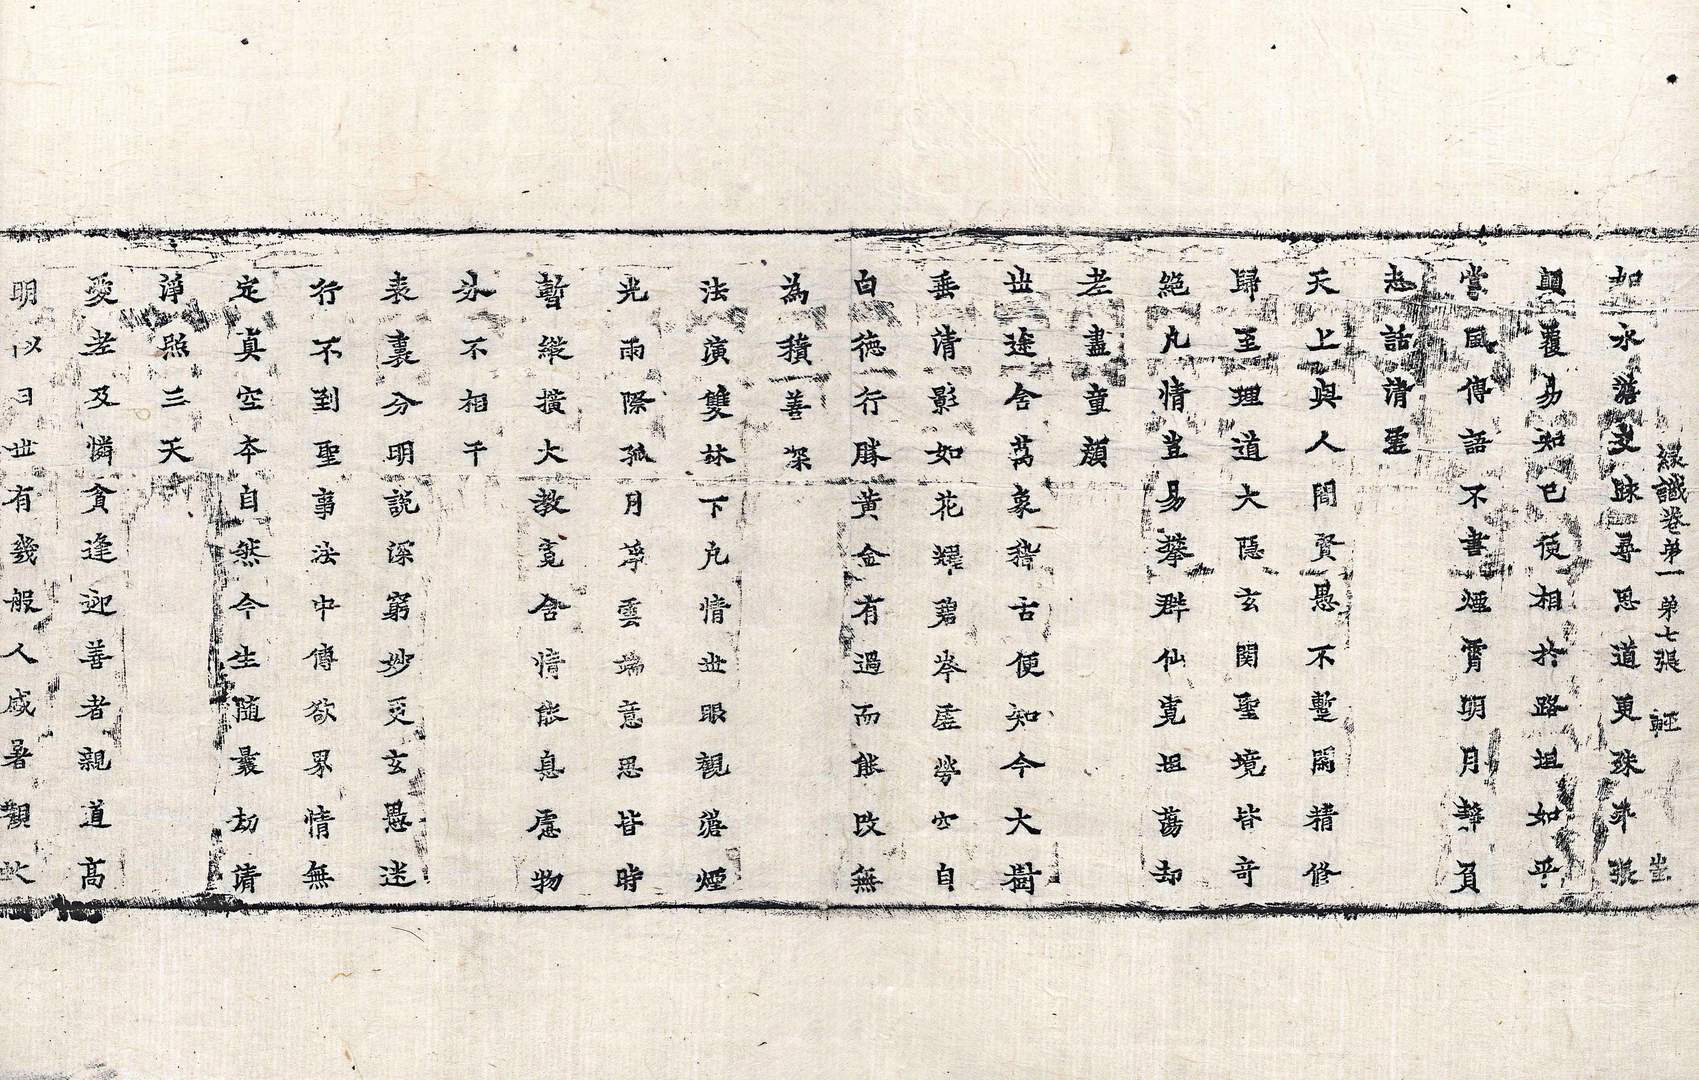 緣識卷第一 第七張
如永澹文踈尋思道更殊乖張
顛覆易知己便相於路坦如平
嘗風傳語不書煙霄明月靜負
志話清虛
天上與人間賢愚不蹔閑精修
歸至理道大隱玄関聖境皆竒
絶凡情豈易攀群仙寛坦蕩却
老盡童顔
世途含萬象稽古便知今大樹
垂清影如花耀碧岑虛勞空自
白徳行勝黄金有過而能改無
為積善深
法演雙林下凡情世眼觀澹煙
光雨際孤月浄雲端意思皆時
蹔縱撗大教寛含情能息慮物
外不相干
表裏分明説深窮妙更玄愚迷
行不到聖事法中傳欲界情無
定真空本自然今生隨曩劫清
淨照三天
愛老及憐貧逢迎善者親道高
明似日世有幾般人感暑觀